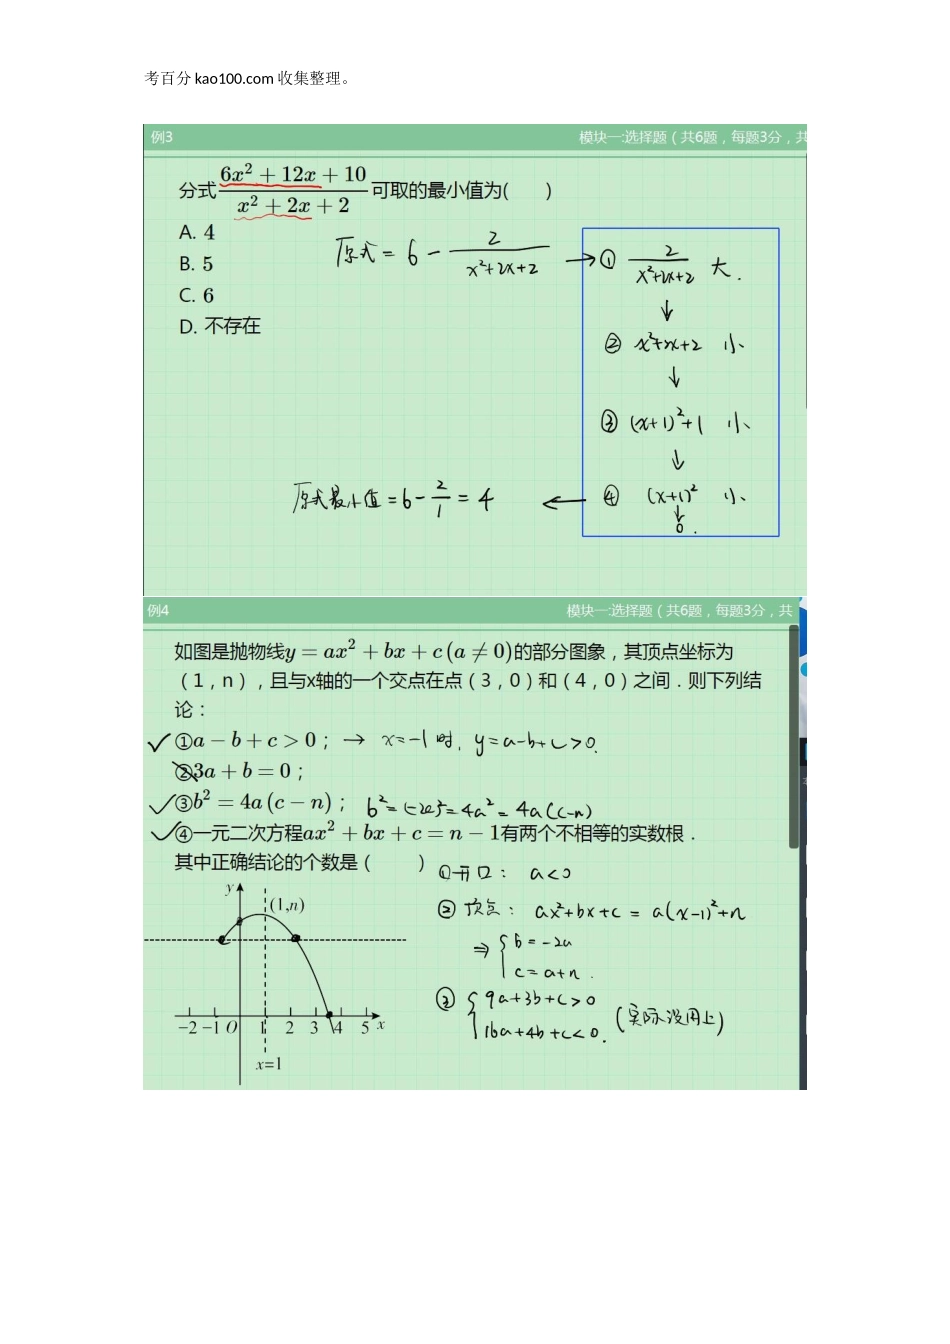 考百分 kao100.com 收集整理。
例3 模块一:选择题（共6题，每题3分，共
分式 \frac{6x^2+12x+10}{x^2+2x+2} 可取的最小值为( )
A. 4
B. 5
C. 6
D. 不存在
原式 = 6 - \frac{2}{x^2+2x+2} → ① \frac{2}{x^2+2x+2} 大.
↓
② x^2+2x+2 小、
↓
③ (x+1)^2+1 小、
↓
原式最小值 = 6 - \frac{2}{1} = 4 ← ④ (x+1)^2 小、
↓
0.
例4 模块一:选择题（共6题，每题3分，共
如图是抛物线y = ax^2 + bx + c (a ≠ 0)的部分图象，其顶点坐标为
（1，n），且与x轴的一个交点在点（3，0）和（4，0）之间．则下列结
论：
①a − b + c > 0； → x=-1时, y=a-b+c>0.
②3a + b = 0；
③b^2 = 4a (c − n)； b^2=(-2a)^2=4a^2=4a(c-n)
④一元二次方程ax^2 + bx + c = n − 1有两个不相等的实数根．
其中正确结论的个数是（ ）
①开口： a<0
②顶点： ax^2+bx+c = a(x-1)^2+n
⇒ { b=-2a
c=a+n.
③ { 9a+3b+c>0
16a+4b+c<0. (实际没用上)
y
(1,n)
−2 −1 O 1 2 3 4 5 x
x=1